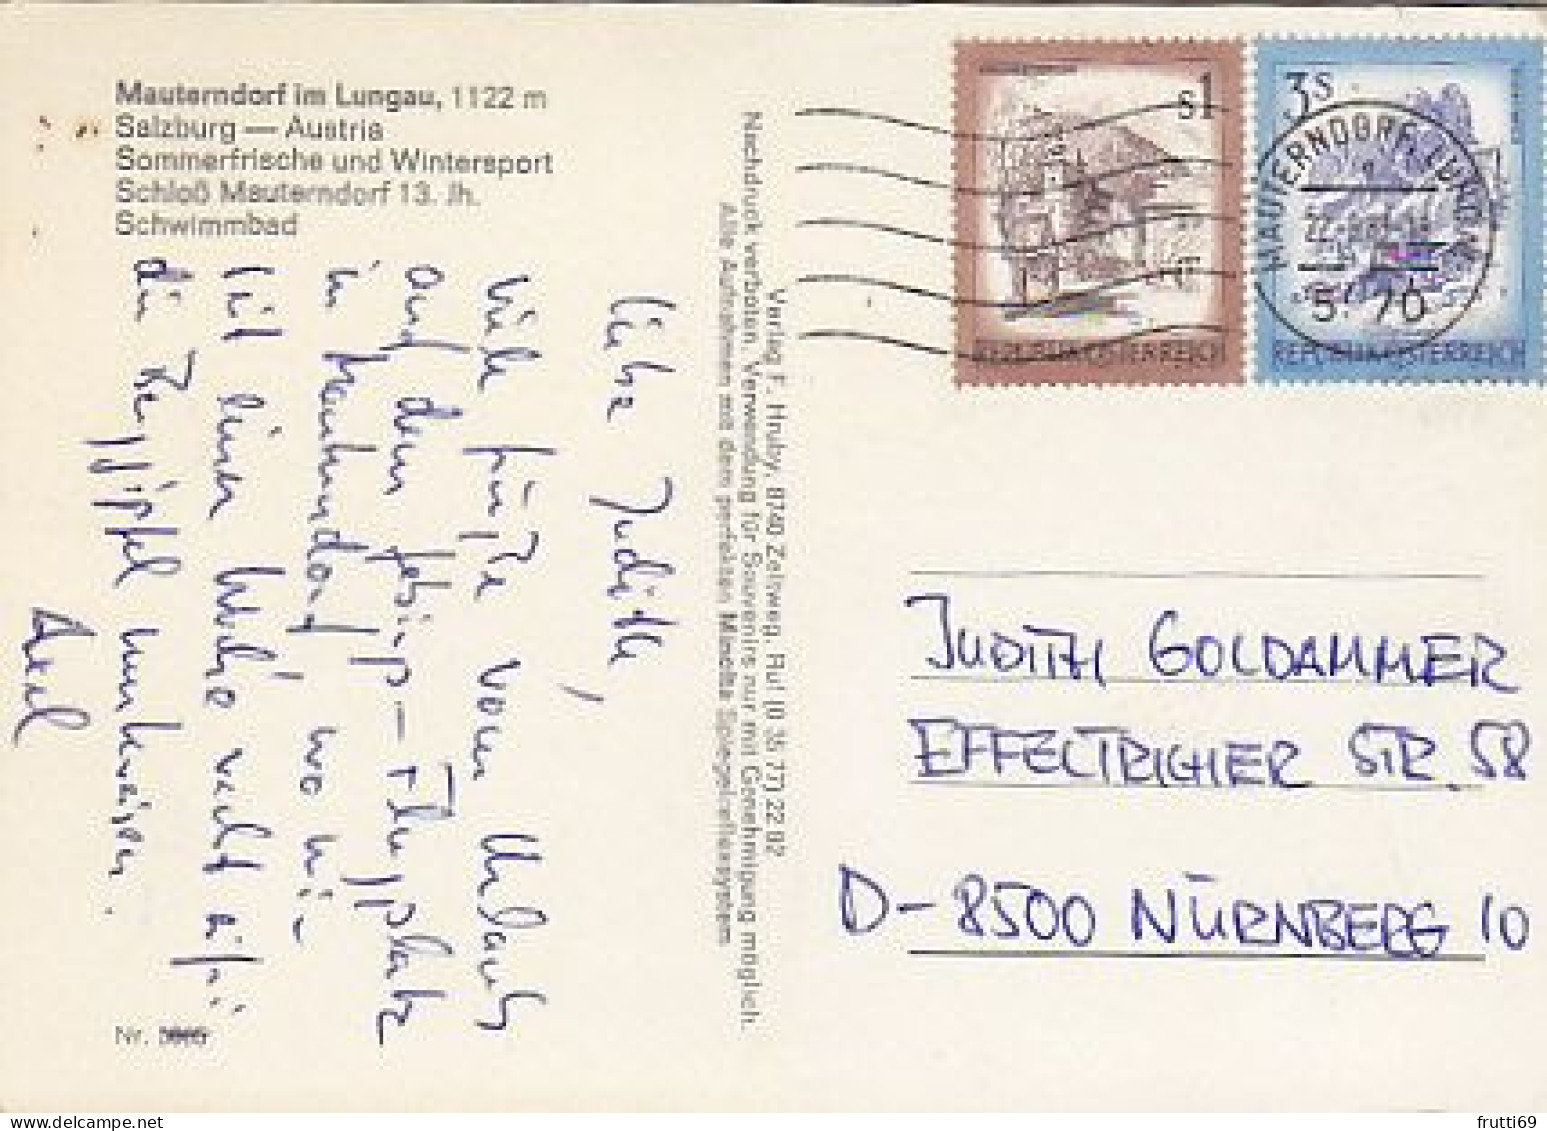 Mauterndorf im Lungau, 1122 m
Salzburg — Austria
Sommerfrische und Wintersport
Schloß Mauterndorf 13. Jh.
Schwimmbad
Liebe Judith,
viele Grüße vom Urlaub
auf dem Flugplatz
in Mauterndorf, wo wir
seit einer Woche
die Berggipfel umkreisen.
Nr.
Verlag F. Hruby, 8740 Zeltweg, Ruf (0 35 77) 22 82
Nachdruck verboten. Verwendung für Souvenirs nur mit Genehmigung möglich.
Alle Aufnahmen mit dem perfekten Minolta Spiegelreflexsystem
s1
REPUBLIK ÖSTERREICH
3s
REPUBLIK ÖSTERREICH
MAUTERNDORF, LUNGAU
5570
JUDITH GOLDAMMER
EFFELTRICHER STR. 58
D-8500 NÜRNBERG 10
frutti69